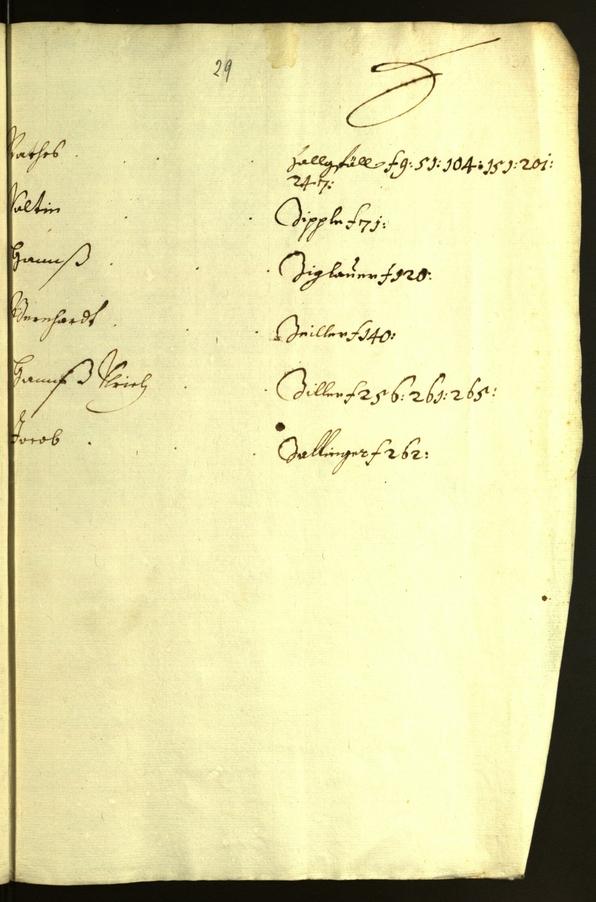 29
Z
Mathes Zallgfüll f 9: 51: 104: 151: 201:
247:
Valtin Zipple f 71:
Hannß Ziglauer f 120:
Bernhardt Zeiller f 140:
Hannß Ulrich Ziller f 256: 261: 265:
Jacob Zallinger f 262: